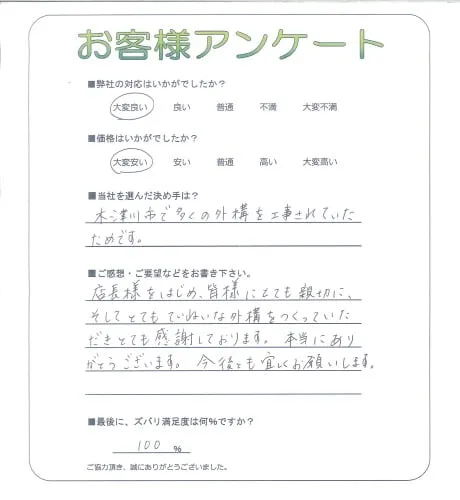 お客様アンケート
■弊社の対応はいかがでしたか?
大変良い 良い 普通 不満 大変不満
■価格はいかがでしたか?
大変安い 安い 普通 高い 大変高い
■当社を選んだ決め手は?
木津川市で多くの外構を工事されていた
ためです。
■ご感想・ご要望などをお書き下さい。
店長様をはじめ、皆様にとても親切に、
そしてとてもていねいな外構をつくっていた
だきとても感謝しております。本当にあり
がとうございます。今後とも宜しくお願いします。
■最後に、ズバリ満足度は何%ですか?
100 %
ご協力頂き、誠にありがとうございました。